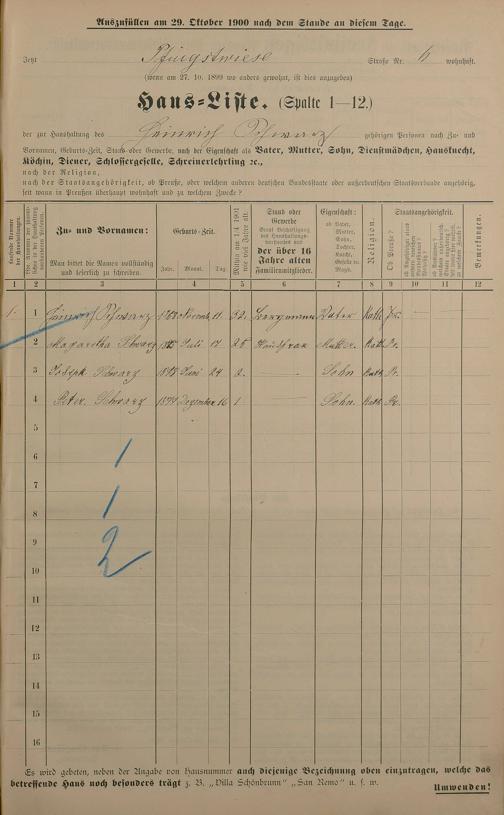 Auszufüllen am 29. Oktober 1900 nach dem Stande an diesem Tage.
Jetzt Pfingstwiese Straße Nr. 6 wohnhaft.
(wenn am 27. 10. 1899 wo anders gewohnt, ist dies anzugeben)
Haus-Liste. (Spalte 1—12.)
der zur Haushaltung des Heinrich Schwarz gehörigen Personen nach Zu- und
Vornamen, Geburts-Zeit, Stand oder Gewerbe, nach der Eigenschaft als Vater, Mutter, Sohn, Dienstmädchen, Hausknecht,
Köchin, Diener, Schlossergeselle, Schreinerlehrling ec.,
nach der Religion,
nach der Staatsangehörigkeit, ob Preuße, oder welchem anderen deutschen Bundesstaate oder außerdeutschen Staatsverbande angehörig,
seit wann in Preußen überhaupt wohnhaft und zu welchem Zwecke?
Laufende Nummer der Haushaltungen.
Zu- und Vornamen:
Man bittet die Namen vollständig und leserlich zu schreiben.
Geburts-Zeit.
Jahr. Monat. Tag
Mithin am 1/4 1901 wie viel Jahre alt.
Stand oder Gewerbe
der über 16 Jahre alten Familienmitglieder.
Eigenschaft:
ob Vater, Mutter, Sohn, Tochter, Knecht, Geselle o. Magd.
Religion.
Ob Preuße?
Staatsangehörigkeit.
Bemerkungen.
1 2 3 4 5 6 7 8 9 10 11 12
1. 1 Heinrich Schwarz 1868 Novemb. 11. 32. Bergmann Vater Kath. Pr.
2 Margaretha Schwarz Juli 17 Hausfrau Mutter. Kath. Pr.
3 Joseph Schwarz 1898 Juni 24 2. — Sohn Kath. Pr.
4 Peter Schwarz 1899 Dezember 16 1 — Sohn. Kath. Pr.
5
6
1
7
8
1
9
2
10
11
12
13
14
15
16
Es wird gebeten, neben der Angabe von Hausnummer auch diejenige Bezeichnung oben einzutragen, welche das
betreffende Haus noch besonders trägt z. B. „Villa Schönbrunn" „San Remo" u. s. w.
Umwenden!